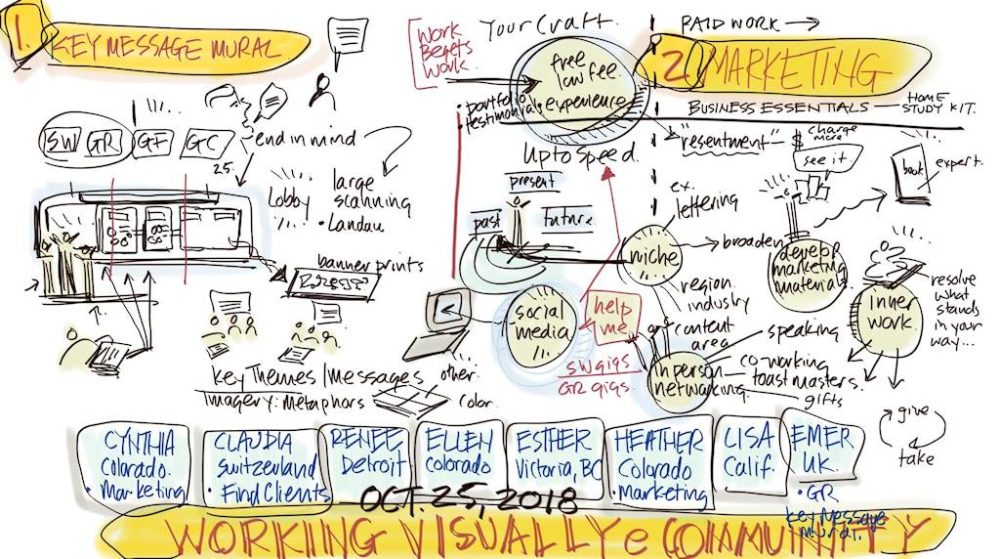 1.
KEY MESSAGE MURAL
SW
GR
GF
GC
25.
end in mind
Lobby
large
scanning
• Landau
banner prints
key Themes/Messages
imagery: metaphors
other.
color.
Work
Begets
Work.
Your Craft.
free
low fee.
experience
• portfolio
testimonial.
Up to Speed.
present
past
future
social
media
help
me
SW gigs
GR gigs.
PAID WORK →
2. MARKETING
BUSINESS ESSENTIALS — HOME
STUDY KIT.
"resentment" — $
charge
more
see it.
book
expert.
ex.
lettering
niche
broaden
region
industry
content
area
develop
marketing
materials
inner
work.
resolve
what
stands
in your
way...
in person
networking
speaking
co-working
toast masters.
gifts
give
take
CYNTHIA
Colorado.
• Marketing
CLAUDIA
Switzerland
• Find Clients
RENEE
Detroit
ELLEN
Colorado
ESTHER
Victoria, BC
HEATHER
Colorado
• Marketing
LISA
Calif.
EMER
UK.
• GR
key Message
mural.
OCT. 25, 2018
WORKING VISUALLY e COMMUNITY